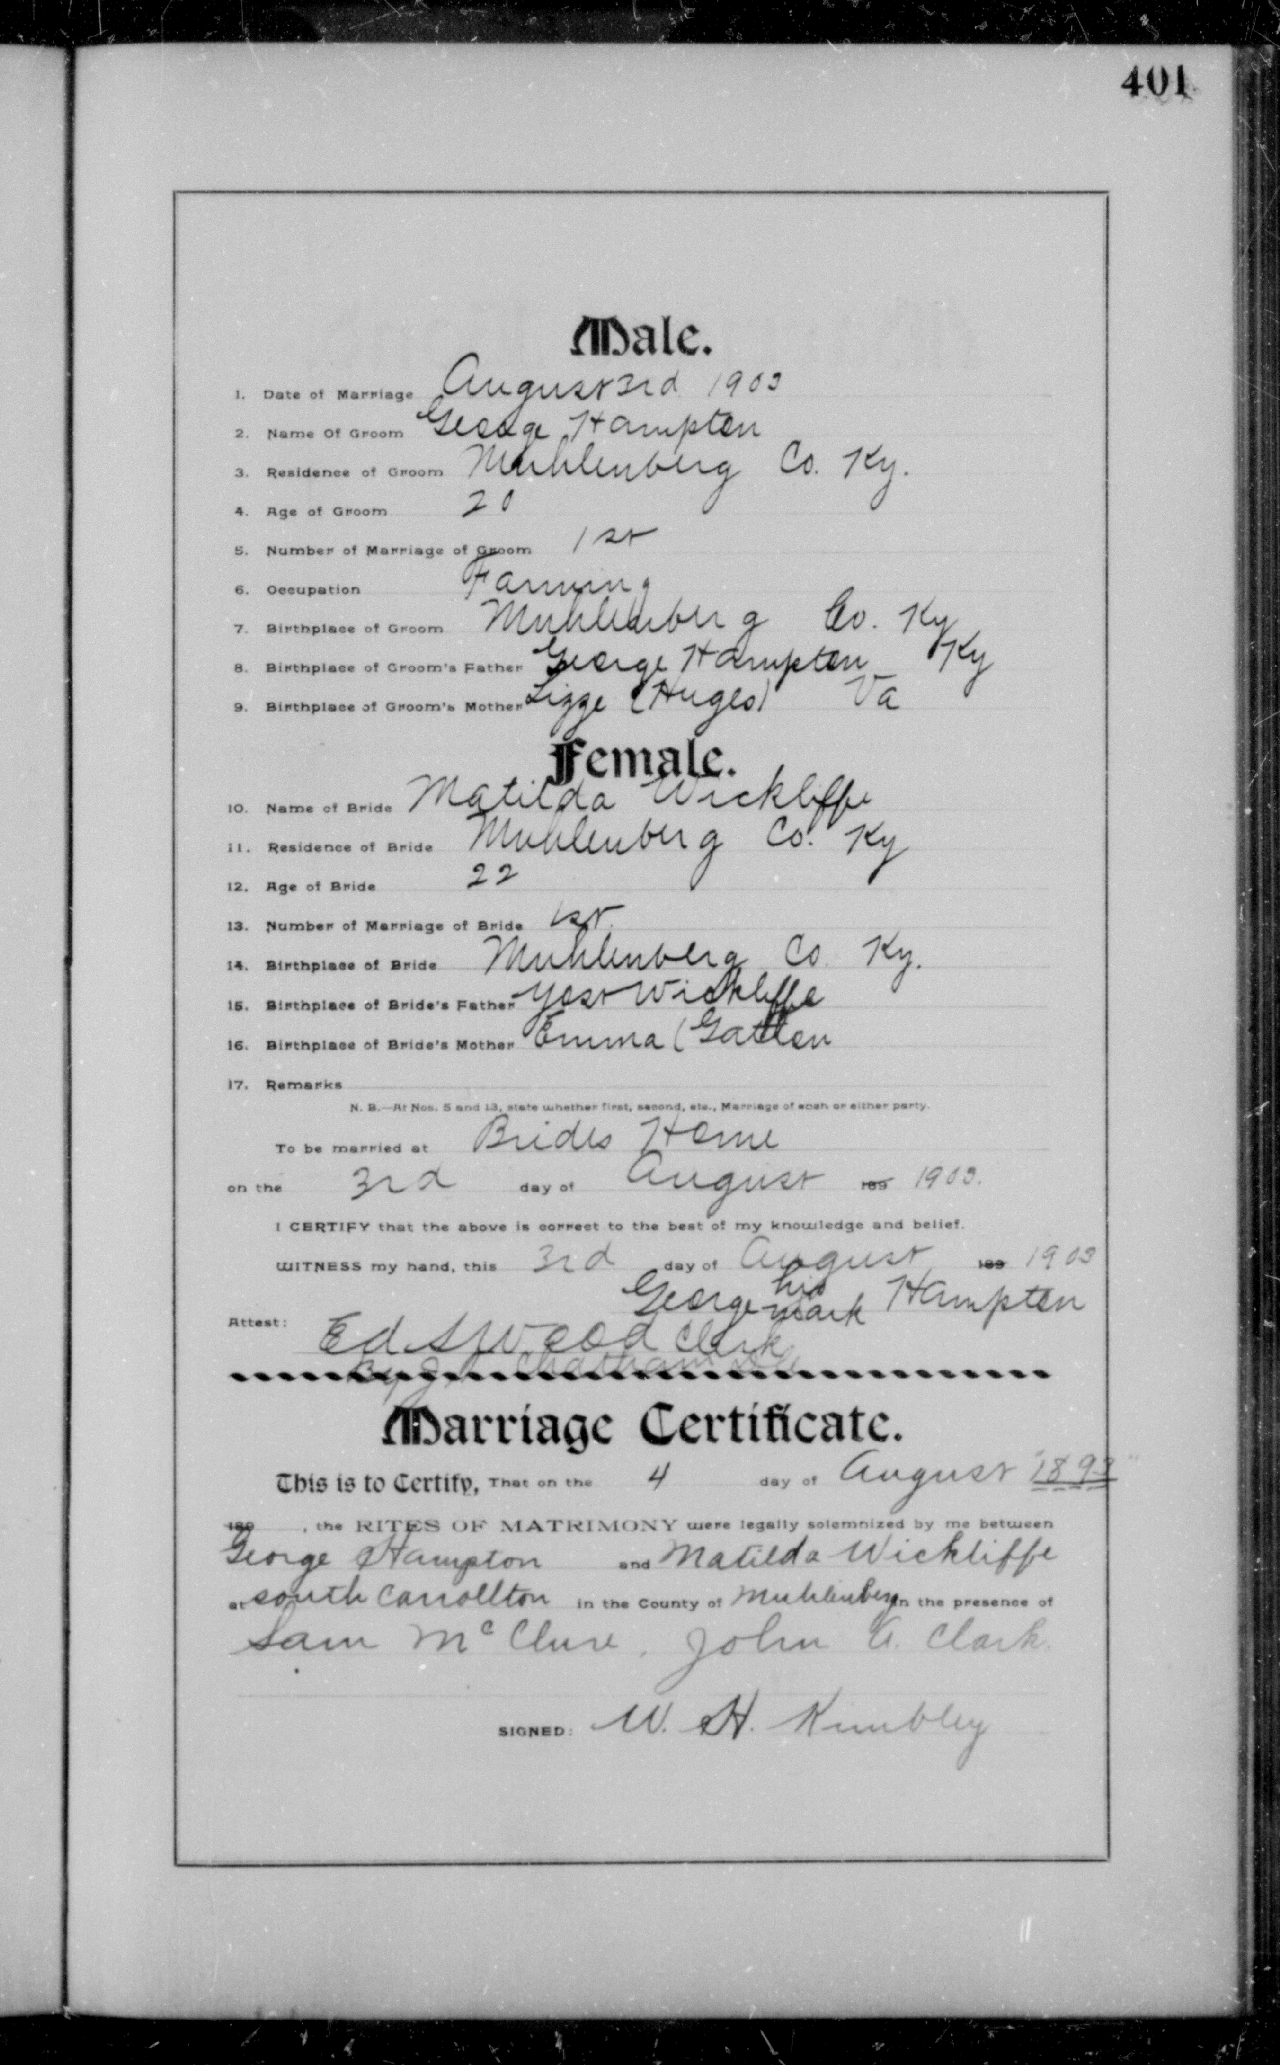 401
Male.
1. Date of Marriage August 3rd 1903
2. Name Of Groom George Hampton
3. Residence of Groom Muhlenberg Co. Ky.
4. Age of Groom 20
5. Number of Marriage of Groom 1st
6. Occupation Farming
7. Birthplace of Groom Muhlenberg Co. Ky
8. Birthplace of Groom's Father George Hampton Ky
9. Birthplace of Groom's Mother Lizze (Huges) Va
Female.
10. Name of Bride Matilda Wickliffe
11. Residence of Bride Muhlenberg Co. Ky
12. Age of Bride 22
13. Number of Marriage of Bride 1st.
14. Birthplace of Bride Muhlenberg Co Ky.
15. Birthplace of Bride's Father Yost Wickliffe
16. Birthplace of Bride's Mother Emma (Gatton
17. Remarks
N. B.—At Nos. 5 and 13, state whether first, second, etc., Marriage of each or either party.
To be married at Brides Home
on the 3rd day of August 189 1903.
I CERTIFY that the above is correct to the best of my knowledge and belief.
WITNESS my hand, this 3rd day of August 189 1903
George his mark Hampton
Attest: Ed S Wood Clerk
By J Chatham DC
Marriage Certificate.
This is to Certify, That on the 4 day of August "1893"
189 , the RITES OF MATRIMONY were legally solemnized by me between
George Hampton and Matilda Wickliffe
at south Carrollton in the County of Muhlenberg in the presence of
Sam McClure. John A. Clark.
SIGNED: W. H. Kimbley